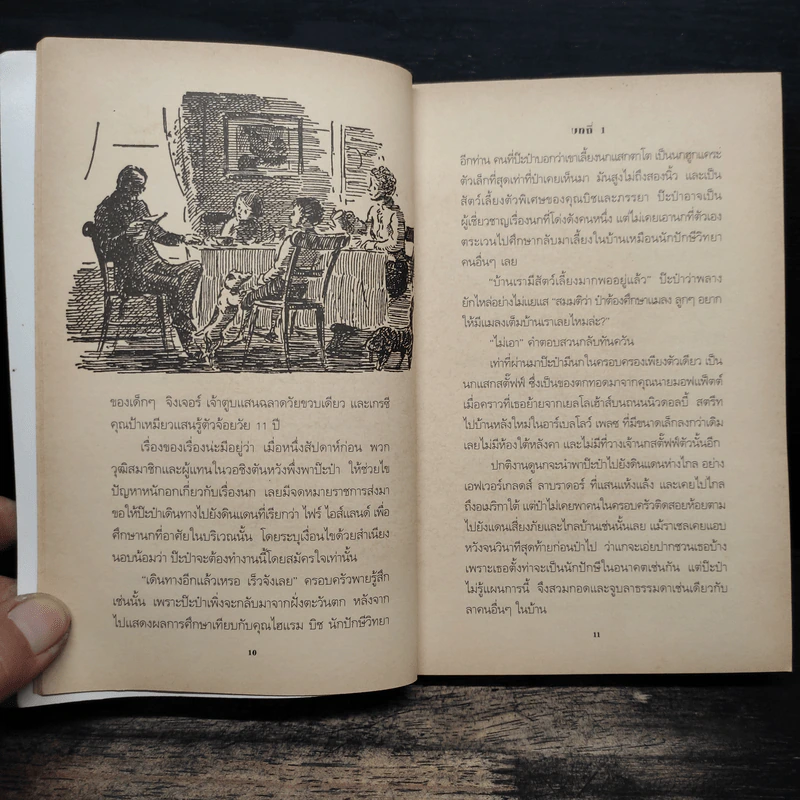 ของเด็กๆ จิงเจอร์ เจ้าตูบแสนฉลาดวัยขวบเดียว และเกรซี
คุณป้าเหมียวแสนรู้ตัวจ้อยวัย 11 ปี
เรื่องของเรื่องน่ะมีอยู่ว่า เมื่อหนึ่งสัปดาห์ก่อน พวก
วุฒิสมาชิกและผู้แทนในวอชิงตันหวังพึ่งพาป๊ะป๋า ให้ช่วยไข
ปัญหาหนักอกเกี่ยวกับเรื่องนก เลยมีจดหมายราชการส่งมา
ขอให้ป๊ะป๋าเดินทางไปยังดินแดนที่เรียกว่า ไฟร์ ไอส์แลนด์ เพื่อ
ศึกษานกที่อาศัยในบริเวณนั้น โดยระบุเงื่อนไขด้วยสำเนียง
นอบน้อมว่า ป๊ะป๋าจะต้องทำงานนี้โดยสมัครใจเท่านั้น
"เดินทางอีกแล้วเหรอ เร็วจังเลย" ครอบครัวพายรู้สึก
เช่นนั้น เพราะป๊ะป๋าเพิ่งจะกลับมาจากฝั่งตะวันตก หลังจาก
ไปแสดงผลการศึกษาเทียบกับคุณไฮแรม บิช นักปักษีวิทยา
10
บทที่ 1
อีกท่าน คนที่ป๊ะป๋าบอกว่าเขาเลี้ยงนกแสกตาโต เป็นนกฮูกแคระ
ตัวเล็กที่สุดเท่าที่ป๋าเคยเห็นมา มันสูงไม่ถึงสองนิ้ว และเป็น
สัตว์เลี้ยงตัวพิเศษของคุณบิชและภรรยา ป๊ะป๋าอาจเป็น
ผู้เชี่ยวชาญเรื่องนกที่โด่งดังคนหนึ่ง แต่ไม่เคยเอานกที่ตัวเอง
ตระเวนไปศึกษากลับมาเลี้ยงในบ้านเหมือนนักปักษีวิทยา
คนอื่นๆ เลย
"บ้านเรามีสัตว์เลี้ยงมากพออยู่แล้ว" ป๊ะป๋าว่าพลาง
ยักไหล่อย่างไม่แยแส "สมมติว่า ป๋าต้องศึกษาแมลง ลูกๆ อยาก
ให้มีแมลงเต็มบ้านเราเลยไหมล่ะ?"
"ไม่เอา" คำตอบสวนกลับทันควัน
เท่าที่ผ่านมาป๊ะป๋ามีนกในครอบครองเพียงตัวเดียว เป็น
นกแสกสตั๊ฟฟ์ ซึ่งเป็นของตกทอดมาจากคุณนายมอฟแฟ็ตต์
เมื่อคราวที่เธอย้ายจากเยลโลเฮ้าส์บนถนนนิวดอลบี้ สตรีท
ไปบ้านหลังใหม่ในอาร์เบลโลว์ เพลซ ที่มีขนาดเล็กลงกว่าเดิม
เลยไม่มีห้องใต้หลังคา และไม่มีที่วางเจ้านกสตั๊ฟฟ์ตัวนั้นอีก
ปกติงานดูนกจะนำพาป๊ะป๋าไปยังดินแดนห่างไกล อย่าง
เอฟเวอร์เกลดส์ ลาบราดอร์ ที่แสนแห้งแล้ง และเคยไปไกล
ถึงอเมริกาใต้ แต่ป๋าไม่เคยพาคนในครอบครัวติดสอยห้อยตาม
ไปยังแดนเสี่ยงภัยและไกลบ้านเช่นนั้นเลย แม้ราเชลเคยแอบ
หวังจนวินาทีสุดท้ายก่อนป๋าไป ว่าแกจะเอ่ยปากชวนเธอบ้าง
เพราะเธอตั้งท่าจะเป็นนักปักษีในอนาคตเช่นกัน แต่ป๊ะป๋า
ไม่รู้แผนการนี้ จึงสวมกอดและจูบลาธรรมดาเช่นเดียวกับ
ลาคนอื่นๆ ในบ้าน
11